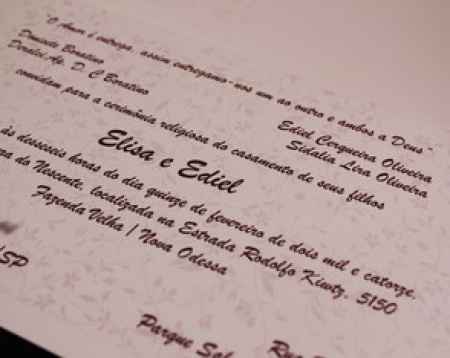 "O Amor é entrega, assim entregamo-nos um ao outro e ambos a Deus"
Donisete Bonatino
Ediel Cerqueira Oliveira
Sidalia Lira Oliveira
convidam para a cerimônia religiosa do casamento de seus filhos
Elisa e Ediel
às dezesseis horas do dia quinze de fevereiro de dois mil e catorze,
do Nascente, localizada na Estrada Rodolfo Kivitz, 5150
Fazenda Velha | Nova Odessa
/SP
Parque